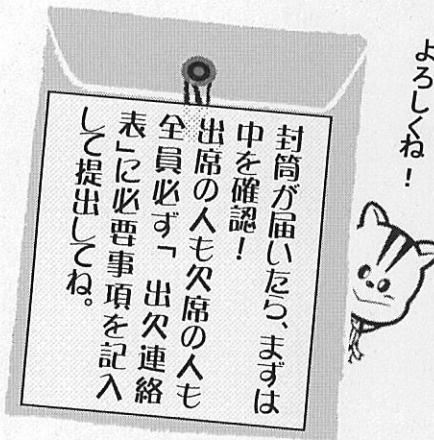 よろしくね！
封筒が届いたら、まずは
中を確認！
出席の人も欠席の人も
全員必ず「出欠連絡
表」に必要事項を記入
して提出してね。